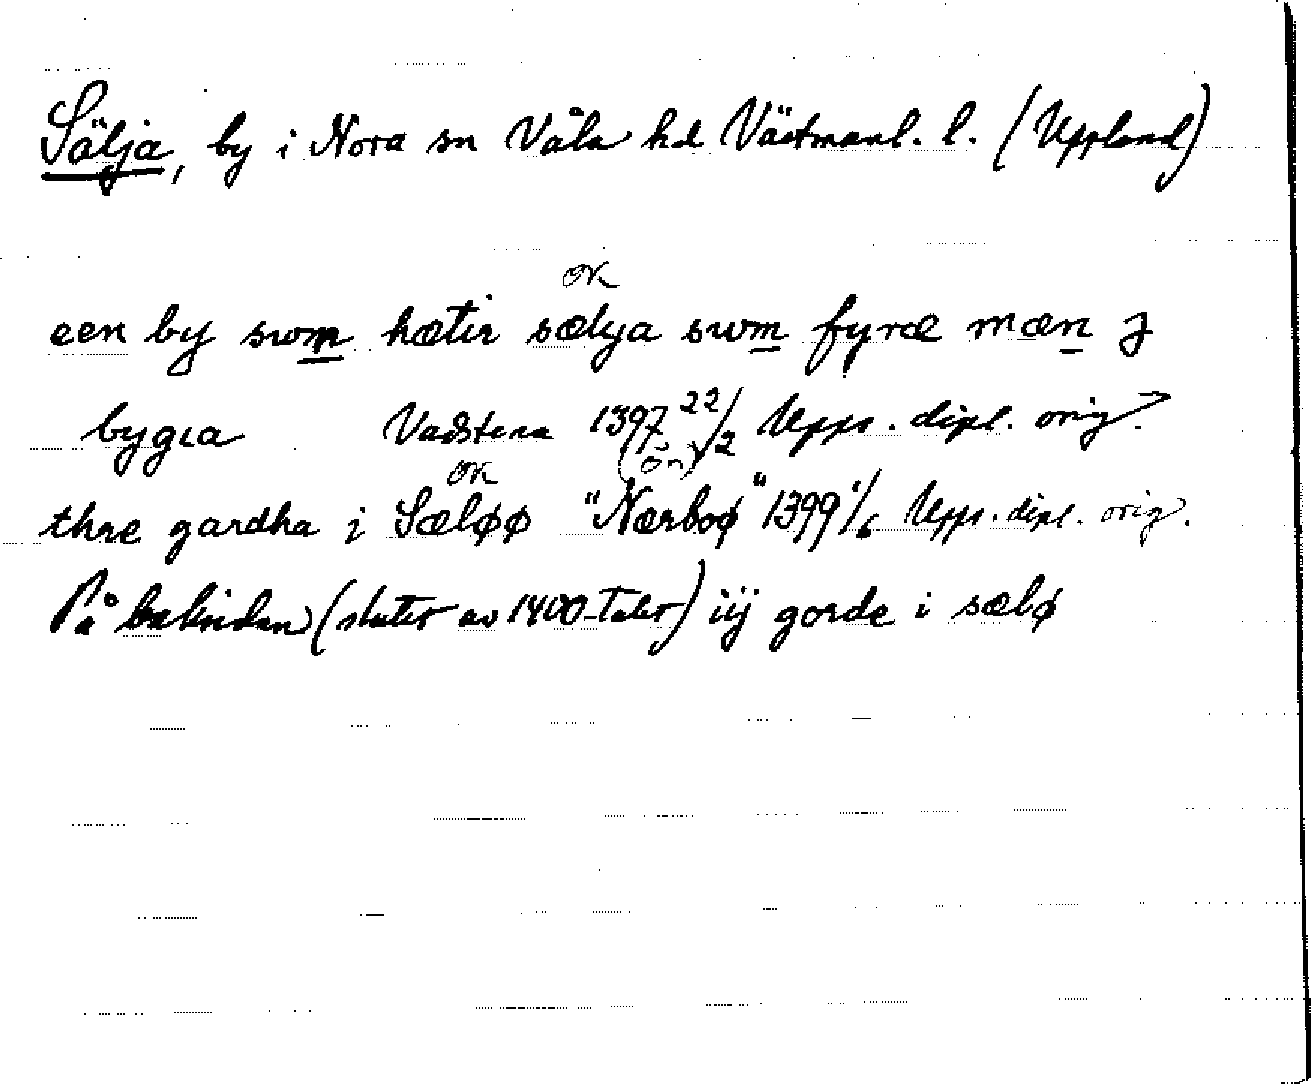 Sälja, by i Nora sn Våla hd Västmanl. l. (Uppland)
OK
een by swm hætir sælya swm fyræ mæn j
bygia Vadstena 1397 22/2 Upps. dipl. orig.
OK (ön)
thre gardha j Sæløø "Nærboø" 1399 1/6 Upps. dipl. orig.
På baksidan (slutet av 1400-talet) iij gorde i sælø